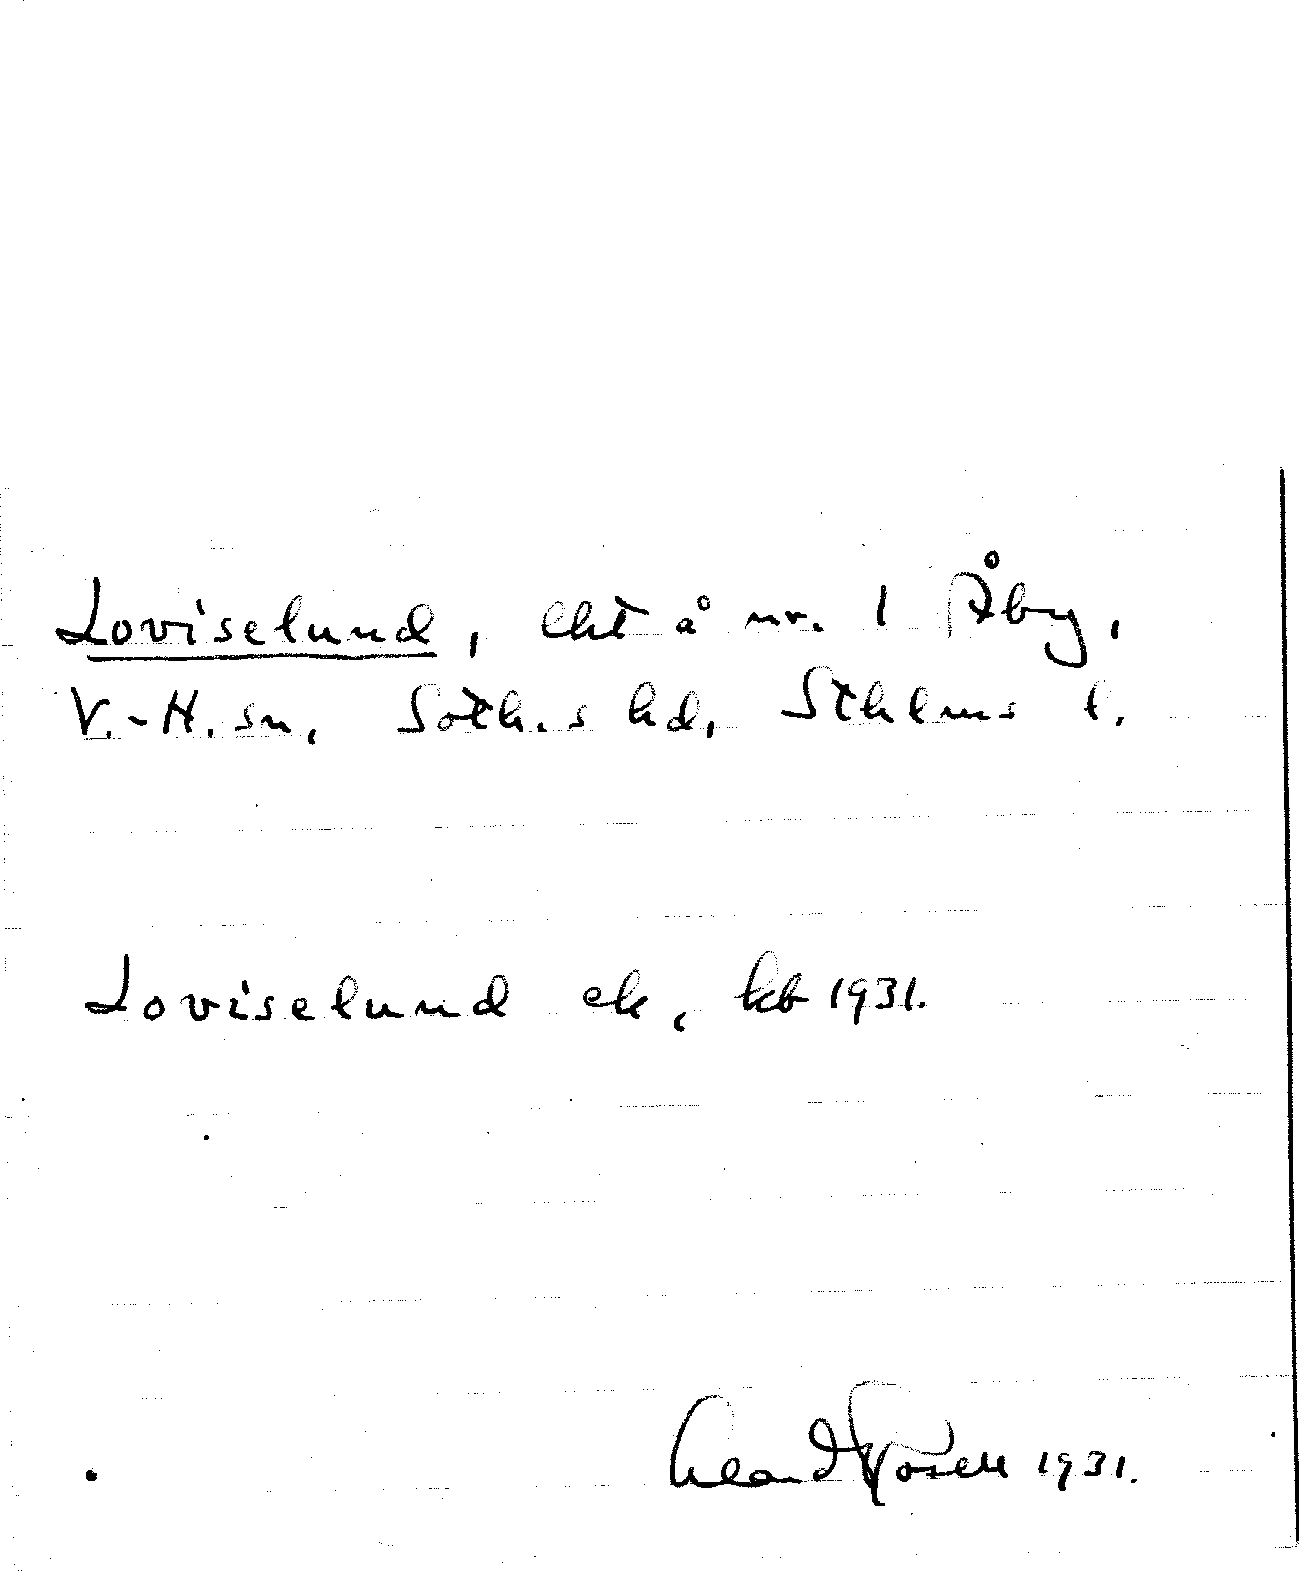 Loviselund, lht å nr. 1 Åby,
V.-H. sn, Soth.s hd, Sthlms l.
Loviselund ek, kb 1931.
1931.